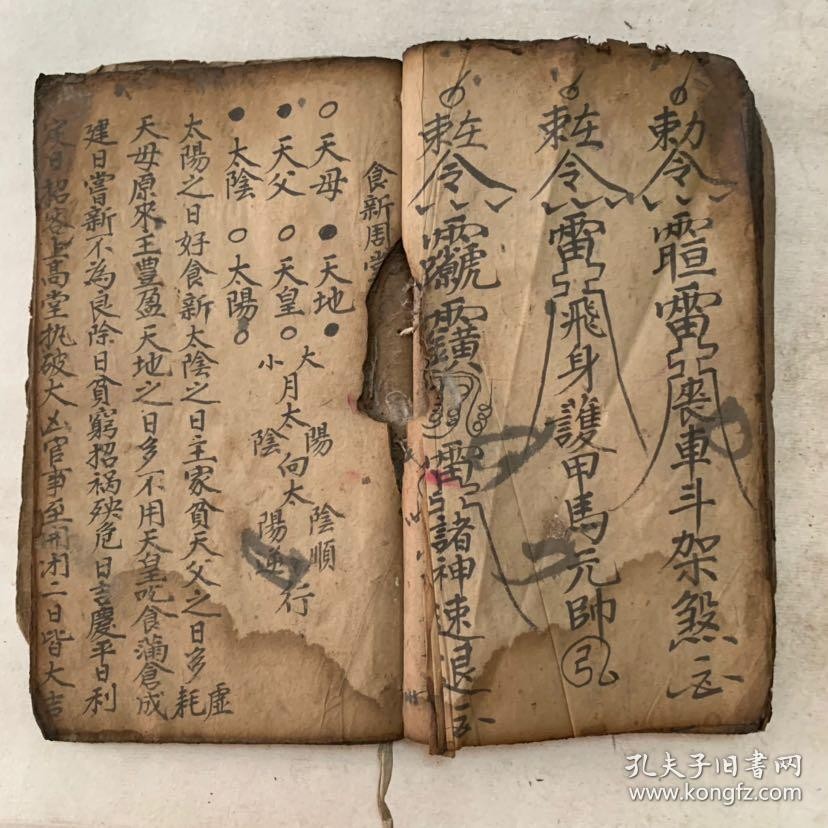 勅令雷喪車斗架煞
勅令雷飛身護甲馬元帥
勅令雷諸神速退
食新周堂
○天母 ●天地●
●天父 ○天皇○
●太陰 ○太陽○
大 陽 陰順
月太向太 行
小 陰 陽逆
太陽之日好食新太陰之日主家貧天父之日多虛耗
天母原來王豐盈天地之日多不用天皇吃食滿倉成
建日嘗新不為良除日貧窮招禍殃危日吉慶平日利
定日招客上高堂执破大凶官事至開闭二日皆大吉
孔夫子旧書网
www.kongfz.com